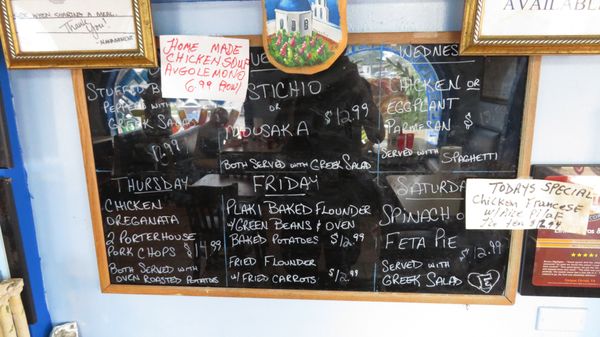 NOT WHEN SHARING A MEAL.
Thank You!
MANAGEMENT
AVAILABLE
HOME MADE
CHICKEN SOUP
AVGOLEMONO
6.99
WEDNES
STUFFED
PEPPERS WITH
GREEK SALAD
STICHIO
OR
$12.99
MOUSAKA
BOTH SERVED WITH GREEK SALAD
CHICKEN OR
EGGPLANT
PARMESAN $
SERVED WITH SPAGHETTI
THURSDAY
CHICKEN
OREGANATA
2 PORTERHOUSE
PORK CHOPS $14.99
BOTH SERVED WITH
OVEN ROASTED POTATOES
FRIDAY
PLAKI BAKED FLOUNDER
W/GREEN BEANS & OVEN
BAKED POTATOES $12.99
FRIED FLOUNDER
W/ FRIED CARROTS $12.99
SATURDA
SPINACH OR
FETA PIE $12.99
SERVED WITH
GREEK SALAD
TODAYS SPECIAL
Chicken Francese
w/Rice Pilaf